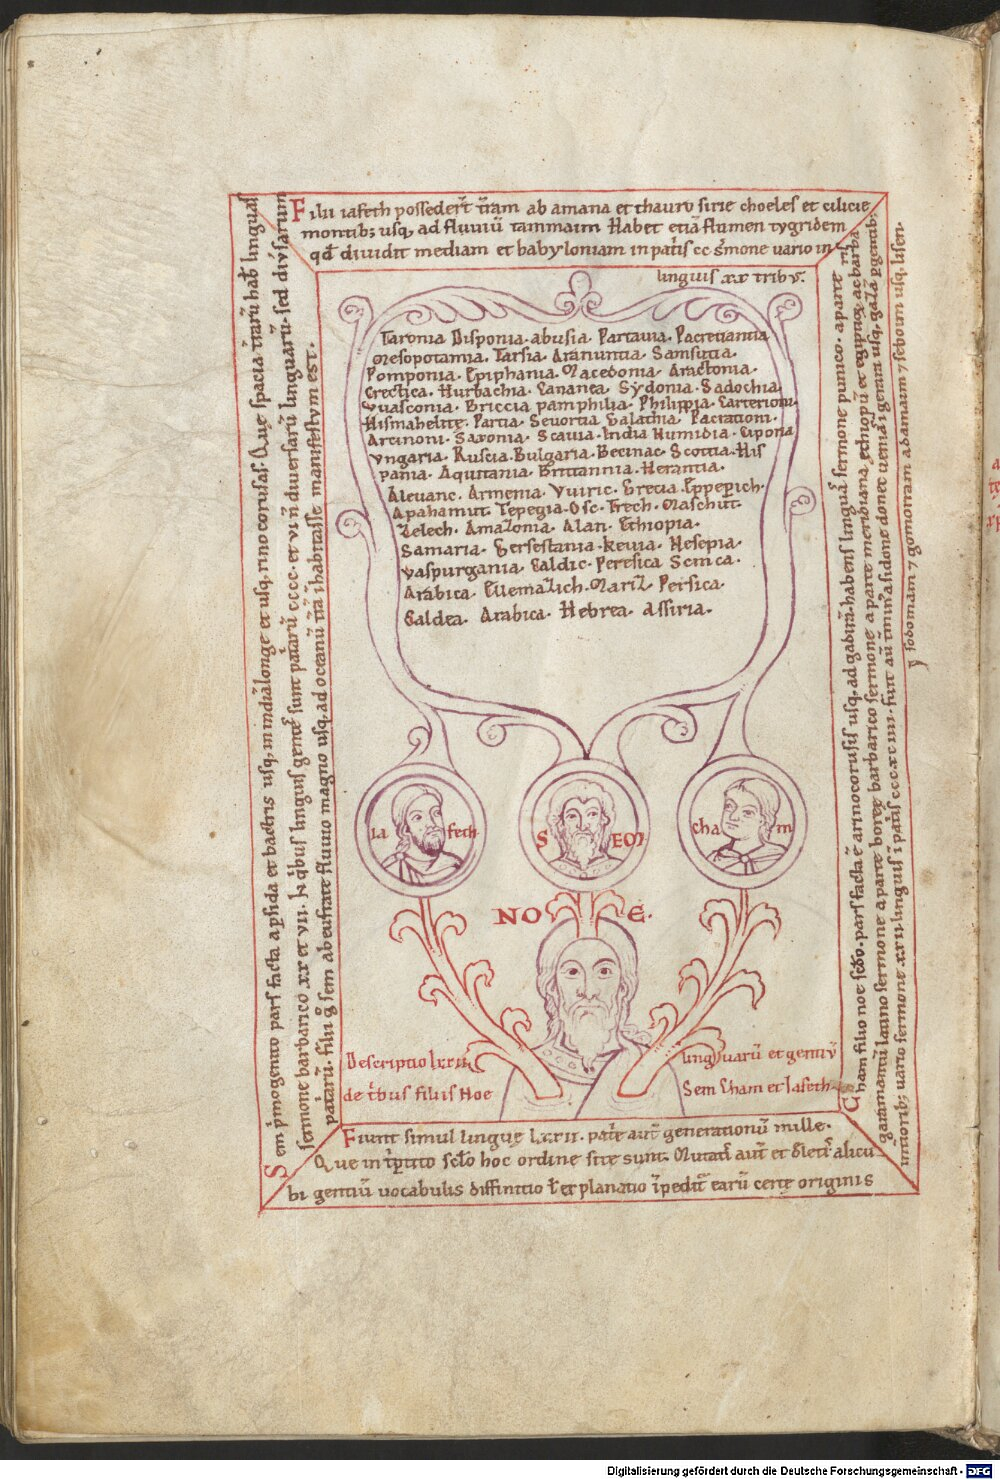 Filii iafeth possedert̃ trãm ab amana et thauro sirie choeles et cilicie
montib; usq, ad fluuiũ tammaim Habet etiã flumen tygridem
qd̃ diuidit mediam et babyloniam in patris cc sermone uario in
linguis xx tribus.
Taronia Disponia abusia Partauia Pacreuantia
Mesopotamia. Tarsia. Aranuntia. Samsutia.
Pomponia. Epiphania. Macedonia. Aractonia.
Erectica. Hurbachia. Cananea. Sydonia. Sadochia
Vuasconia. Briccia pamphilia. Philippia. Carterioni
Hismahelite. Partia. Seuortia Galathia. Paciationi.
Arcinoni. Saxonia. Scauia. India Humidia. Ciporia
Vngaria. Ruscia. Bulgaria. Becinac. Scottia. His
pania. Aquitania. Brittannia. Herantia.
Aleuanc. Armenia. Vuiric. Grecia. Eppeperich.
Apahamut. Tepegia. Osc. Trech. Maschut.
Zelech. Amazonia. Alan. Ethiopia.
Samaria. Gersestania. keuia. Hesepia.
Vaspurgania. Caldic. Peresica Scinca.
Arabica. Ellemazlich. Maril. Persica.
Caldea. Arabica. Hebrea. Assiria.
Ia feth
S EM
cha m
NO E.
Descriptio lxxii linguarũ et gentiũ
de trib̃us filiis Noe Sem Cham et Iafeth
Fiunt simul linguę lxxii. patrię aut̃ generationũ mille.
Que in tripertito sclo hoc ordine site sunt. Mutatis aut̃ et deletis alicu
bi gentiũ uocabulis diffinitio uel explanatio impedit̃ earũ certę originis
Sem primogenito pars facta a persida et bactris usq, in indiã longe et usq, rinocoruras. Que spacia terrarũ habent linguas
sermone barbarico xx et vii. In quibus linguis gentes sunt patriarũ cccc. et vi non diuersarũ linguarũ. sed diuersarum
patriarũ. filii ergo sem ab eufrate fluuio magno usq, ad oceanũ terrã inhabitasse manifestum est.
Cham filio noe scdo. pars facta est a rinocoruris usq, ad gadirã. habens linguã sermone punico. a parte
garamantũ latino sermone a parte boreę barbarico sermone a parte meridiana ethiopũ et egiptiorum ac barba ris
interiorib; uario sermone xxii. linguis in patris cccxciiii. sunt aut̃ termini a sidone donec uenias in geram usq, gazã pergentib;
sodomam et gomorram adamaim et seboim usq, lisen.
Digitalisierung gefördert durch die Deutsche Forschungsgemeinschaft - DFG